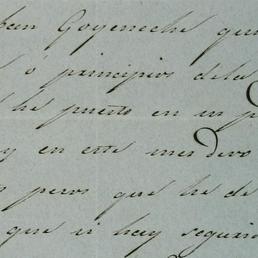 ban Goyeneche que
ó principios dela
ha puesto en un p
y en este mes devo
pero que ha de
que si hay segurid